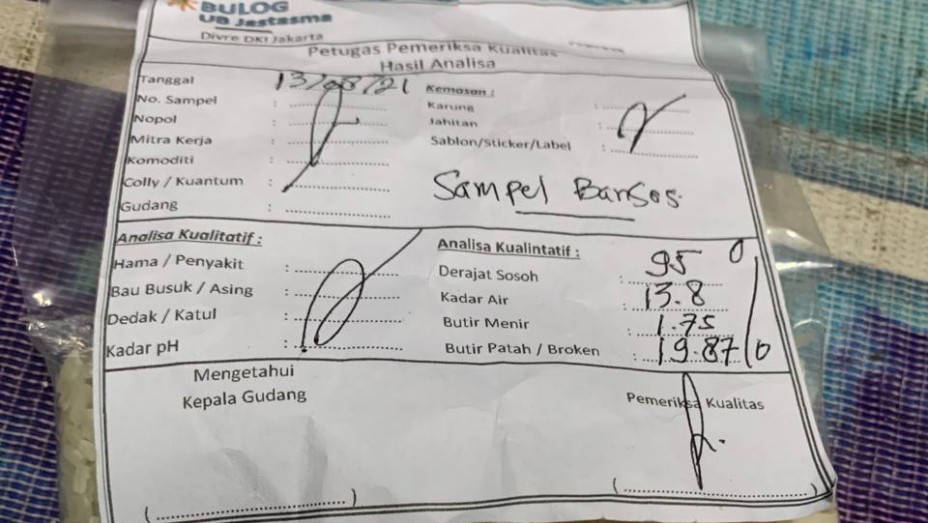 BULOG
UB Jastasma
Divre DKI Jakarta
Petugas Pemeriksa Kualitas
Hasil Analisa
Tanggal 13/08/21
No. Sampel :
Nopol :
Mitra Kerja :
Komoditi :
Colly / Kuantum :
Gudang :
Kemasan :
Karung :
Jahitan :
Sablon/Sticker/Label :
Sampel Bansos.
Analisa Kualitatif :
Hama / Penyakit :
Bau Busuk / Asing :
Dedak / Katul :
Kadar pH :
Analisa Kualintatif :
Derajat Sosoh : 95
Kadar Air : 13.8
Butir Menir : 1.75
Butir Patah / Broken : 19.87
%
Mengetahui
Kepala Gudang
Pemeriksa Kualitas